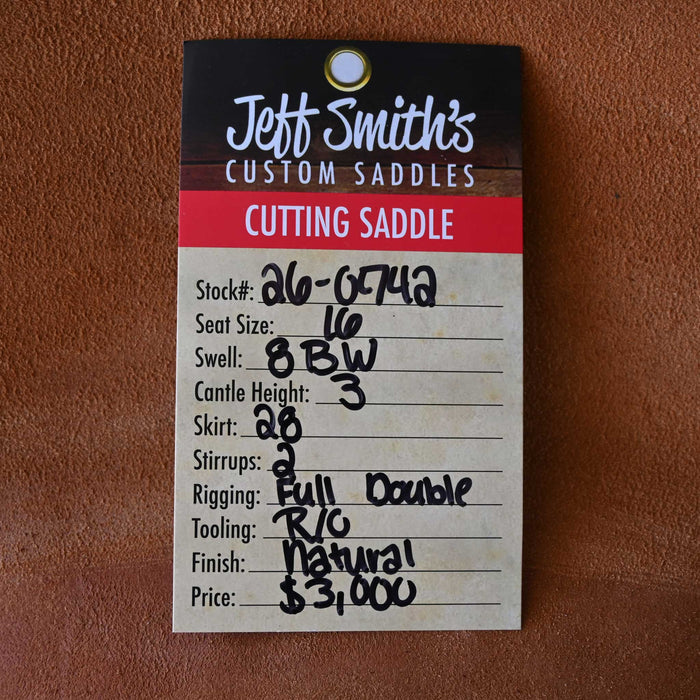 Jeff Smith's
CUSTOM SADDLES
CUTTING SADDLE
Stock#: 26-0742
Seat Size: 16
Swell: 8 BW
Cantle Height: 3
Skirt: 28
Stirrups: 2
Rigging: Full Double
Tooling: R/C
Finish: Natural
Price: $3,000